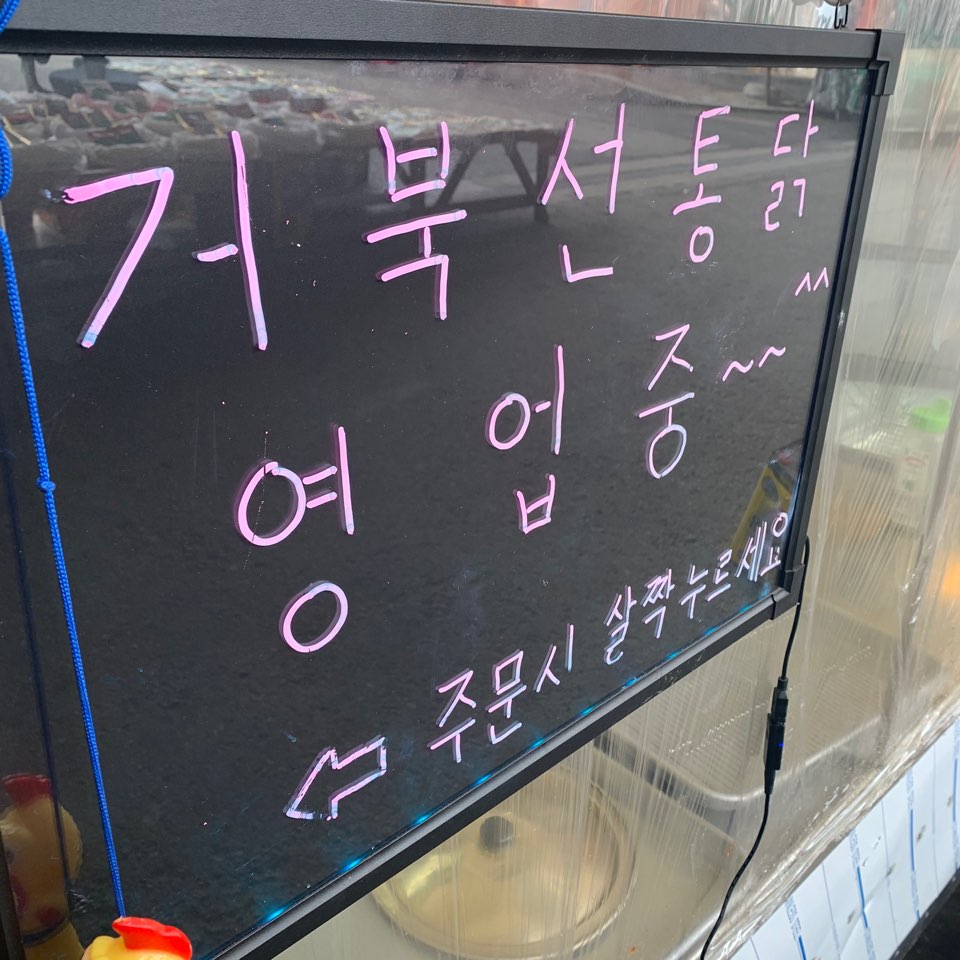 거북선통닭
^^
영업중~~
⇦ 주문시 살짝누르세요